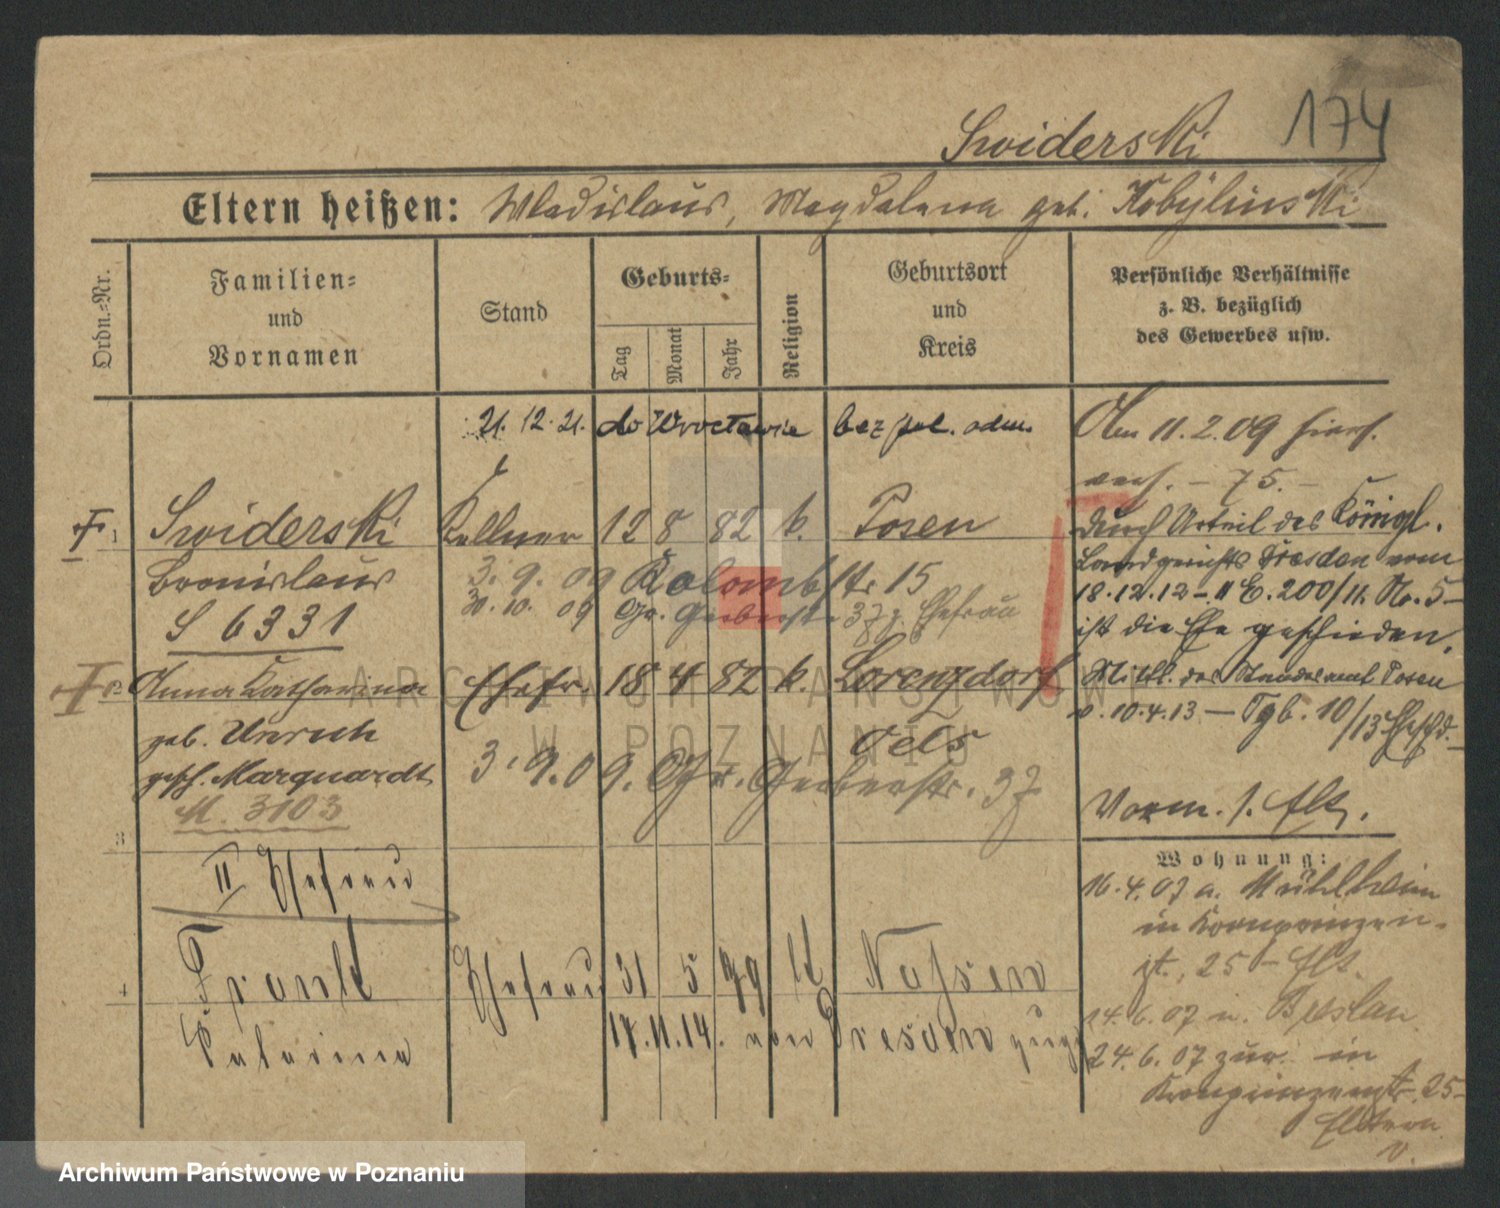 174
Swiderski
Eltern heißen: Wladislaus, Magdalena geb. Kobylinski
Ordn.-Nr.
Familien- und Vornamen
Stand
Geburts-
Tag
Monat
Jahr
Religion
Geburtsort und Kreis
Persönliche Verhältnisse z. B. bezüglich des Gewerbes usw.
21. 12. 21. do Wrocławia bez pol. odm.
Am 11.2.09
verh. – 75. –
1 Swiderski Kellner 12 8 82 k. Posen
Bronislaus 3. 9. 09 Kolombstr 15
30. 10. 09 Gr. Gerberstr 37 z. Ehefrau
S 6331
2 Anna Katharina Ehefr. 18 4 82 k. Lorenzdorf
geb. Unruh Oels
gesch. Marquardt 3. 9. 09. Gr. Gerberstr. 37
M. 3103
3
II Ehefrau
4 Frank Ehefrau 31 5 99 k Nossen
Katarina 17. 11. 14. von Dresden zugez
durch Urteil des Königl.
Landgerichts Dresden vom
18.12.12 – 11 E. 200/11. No. 5 –
ist die Ehe geschieden.
Mittl. des Standesamt Posen
v. 10.4.13 – Tgb. 10/13
Vorm. f. Elt.
Wohnung:
16. 4. 07 a. Mühlheim
in Kronprinzen-
st. 25 – Elt.
14. 6. 07 n. Breslau
24. 6. 07 zur. in
Kronprinzenstr. 25 –
Eltern
v.
ARCHIWUM PAŃSTWOWE
W POZNANIU
Archiwum Państwowe w Poznaniu